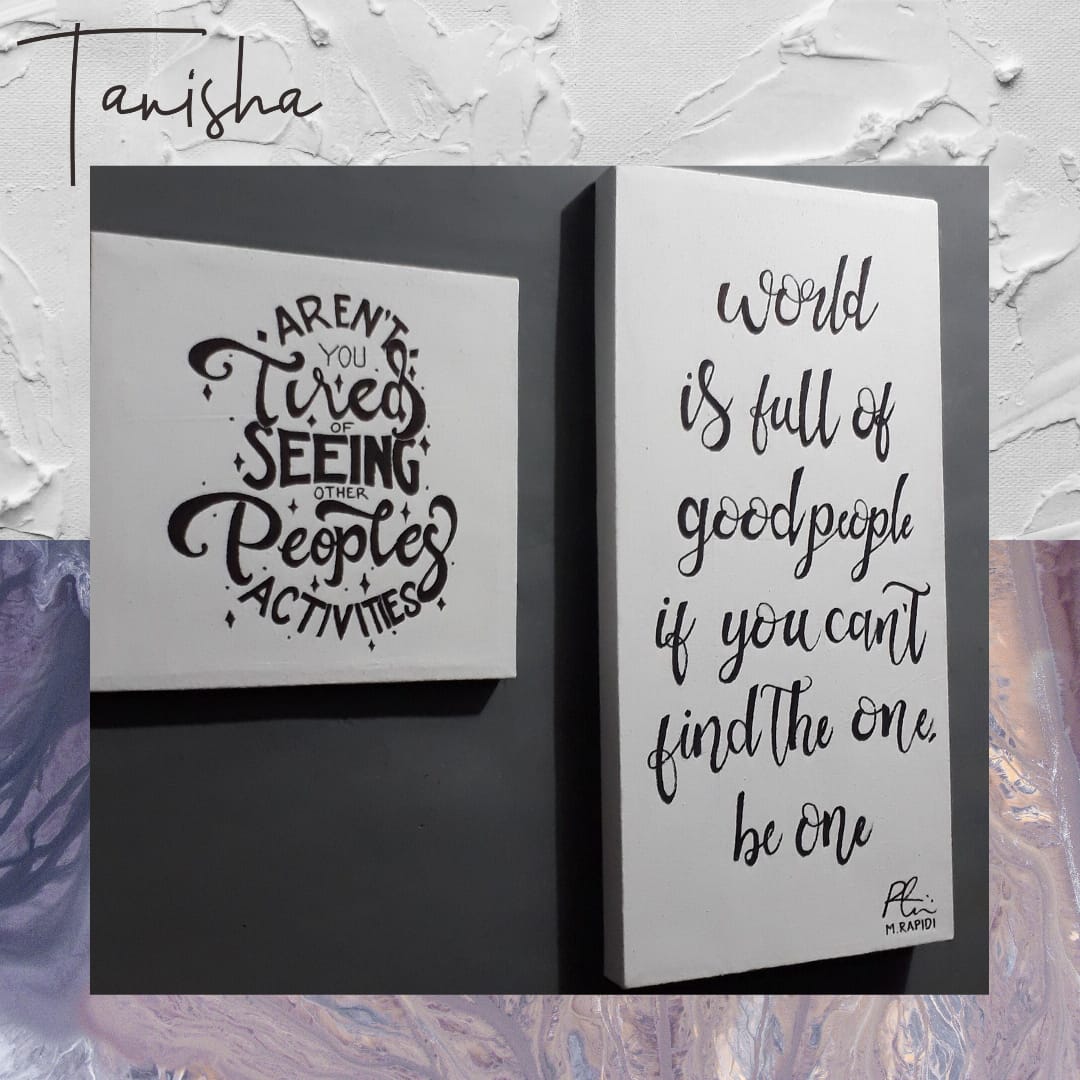 Tanisha
AREN'T
YOU
Tired
OF
SEEING
OTHER
Peoples
ACTIVITIES
world
is full of
good people
if you can't
find the one,
be one
M.RAPIDI